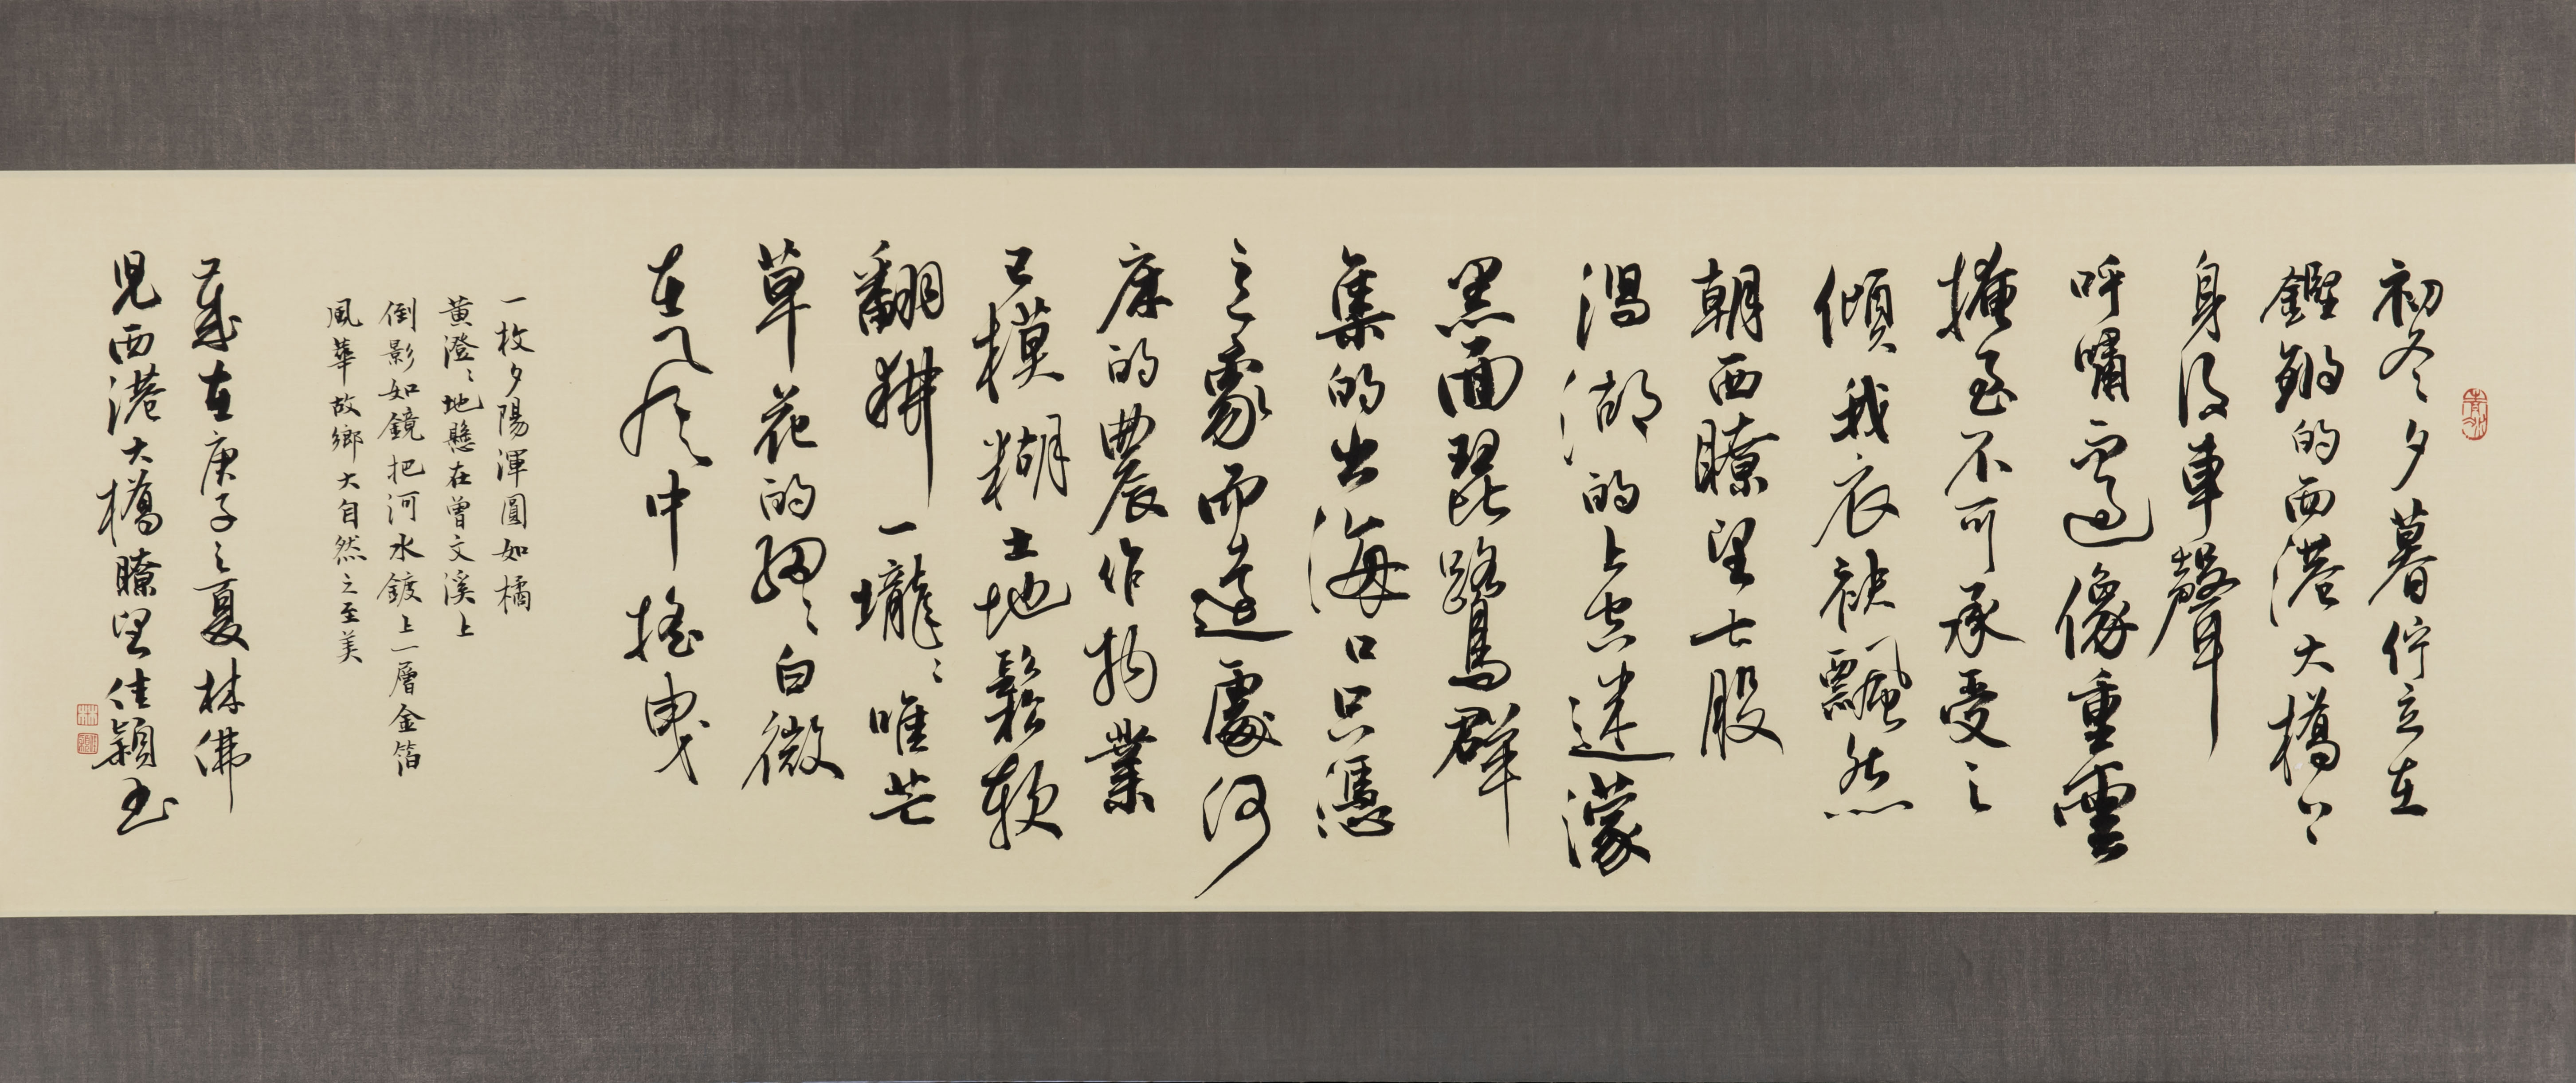 初冬夕暮佇立在
鏗鏘的西港大橋上
身後車聲
呼嘯而過像重雲
掩至不可承受之
傾我衣袂飄然
朝西瞭望七股
潟湖的上空迷濛
黑面琵鷺鳥群
集的出海口只憑
之象而遠處河
床的農作物業
已模糊土地鬆軟
翻耕一壠壠唯芒
草花的翻翻白微
在風中搖曳
一枚夕陽渾圓如橘
黃澄澄地懸在曾文溪上
倒影如鏡把河水鍍上一層金箔
風華故鄉大自然之至美
歲在庚子之夏林佛
兒西港大橋瞭望佳穎書